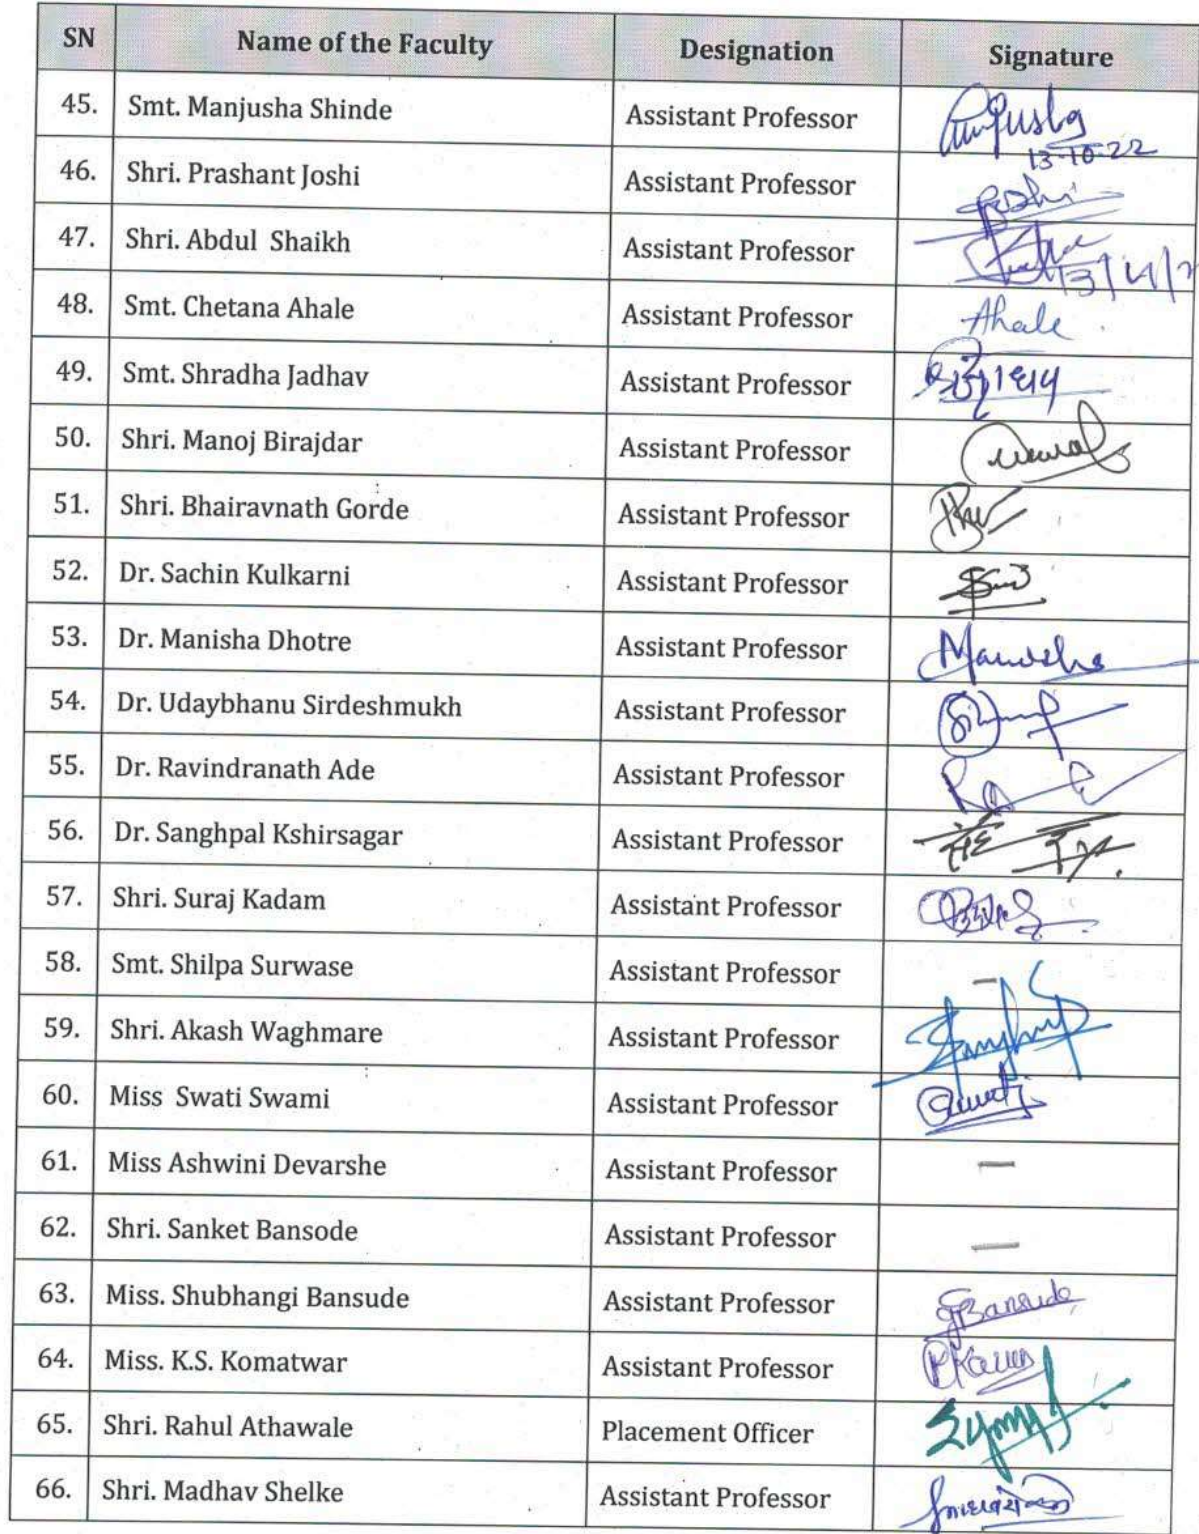 SN Name of the Faculty Designation Signature
45. Smt. Manjusha Shinde Assistant Professor
13-10-22
46. Shri. Prashant Joshi Assistant Professor Joshi
47. Shri. Abdul Shaikh Assistant Professor
48. Smt. Chetana Ahale Assistant Professor Ahale
49. Smt. Shradha Jadhav Assistant Professor
50. Shri. Manoj Birajdar Assistant Professor
51. Shri. Bhairavnath Gorde Assistant Professor
52. Dr. Sachin Kulkarni Assistant Professor
53. Dr. Manisha Dhotre Assistant Professor Manisha
54. Dr. Udaybhanu Sirdeshmukh Assistant Professor
55. Dr. Ravindranath Ade Assistant Professor
56. Dr. Sanghpal Kshirsagar Assistant Professor
57. Shri. Suraj Kadam Assistant Professor
58. Smt. Shilpa Surwase Assistant Professor –
59. Shri. Akash Waghmare Assistant Professor
60. Miss Swati Swami Assistant Professor Swati
61. Miss Ashwini Devarshe Assistant Professor –
62. Shri. Sanket Bansode Assistant Professor –
63. Miss. Shubhangi Bansude Assistant Professor SBansude
64. Miss. K.S. Komatwar Assistant Professor
65. Shri. Rahul Athawale Placement Officer
66. Shri. Madhav Shelke Assistant Professor